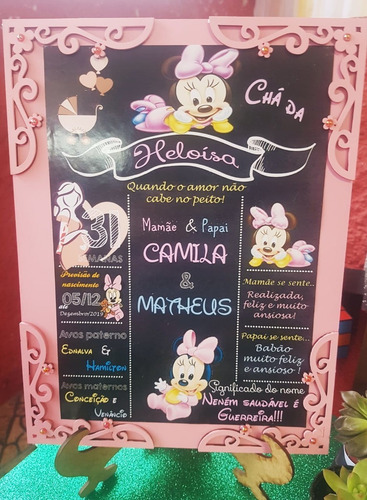 Chá da
Heloísa
Quando o amor não
cabe no peito!
31
SEMANAS
Mamãe & Papai
CAMILA
&
MATHEUS
Previsão de
nascimento
05/12
até
Dezembro/2019
Avós paterno
Ednalva &
Hamilton
Avós maternos
Conceição e
Venâncio
Mamãe se sente..
Realizada,
feliz e muito
ansiosa!
Papai se sente...
Babão
muito feliz
e ansioso !
Significado do nome
Neném saudável é
Guerreira!!!